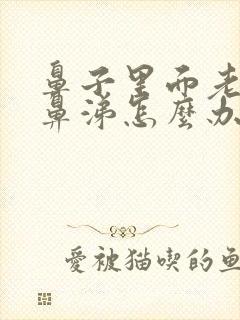 鼻子里而老
鼻涕怎麼办
愛被猫喫的鱼